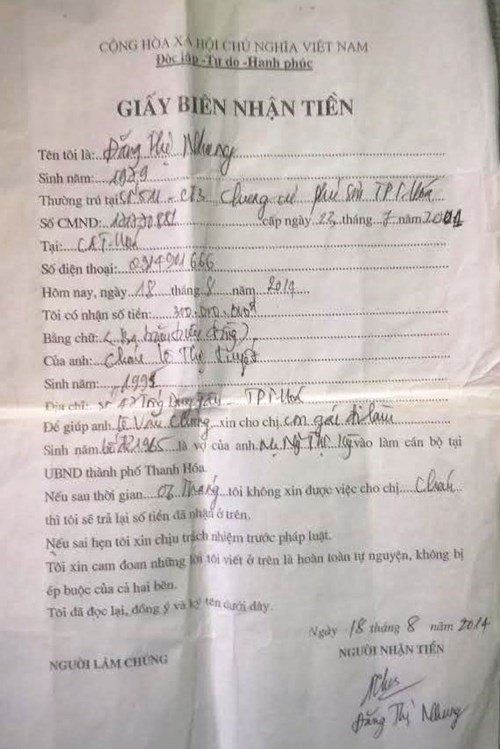 CỘNG HÒA XÃ HỘI CHỦ NGHĨA VIỆT NAM
Độc lập -Tự do -Hạnh phúc
GIẤY BIÊN NHẬN TIỀN
Tên tôi là: Đặng Thị Nhung
Sinh năm: 1959
Thường trú tại Chung cư phú sơn TPT.Hoá
Số CMND: cấp ngày 23 tháng 7 năm 2001
Tại: CAT.Hoá
Số điện thoại: 0914901666
Hôm nay, ngày 18 tháng 8 năm 2014
Tôi có nhận số tiền: 300.000.000đ
Bằng chữ: (Ba trăm triệu đồng)
Của anh: Lê Thị
Sinh năm: 1995
Địa chỉ: TPT.Hoá
Để giúp anh Lê Văn Chung xin cho chị con gái đi làm
Sinh năm 1965 là vợ của anh vào làm cán bộ tại
UBND thành phố Thanh Hóa.
Nếu sau thời gian 02 Tháng tôi không xin được việc cho chị
thì tôi sẽ trả lại số tiền đã nhận ở trên.
Nếu sai hẹn tôi xin chịu trách nhiệm trước pháp luật.
Tôi xin cam đoan những lời tôi viết ở trên là hoàn toàn tự nguyện, không bị
ép buộc của cả hai bên.
Tôi đã đọc lại, đồng ý và ký tên dưới đây.
Ngày 18 tháng 8 năm 2014
NGƯỜI LÀM CHỨNG
NGƯỜI NHẬN TIỀN
Đặng Thị Nhung